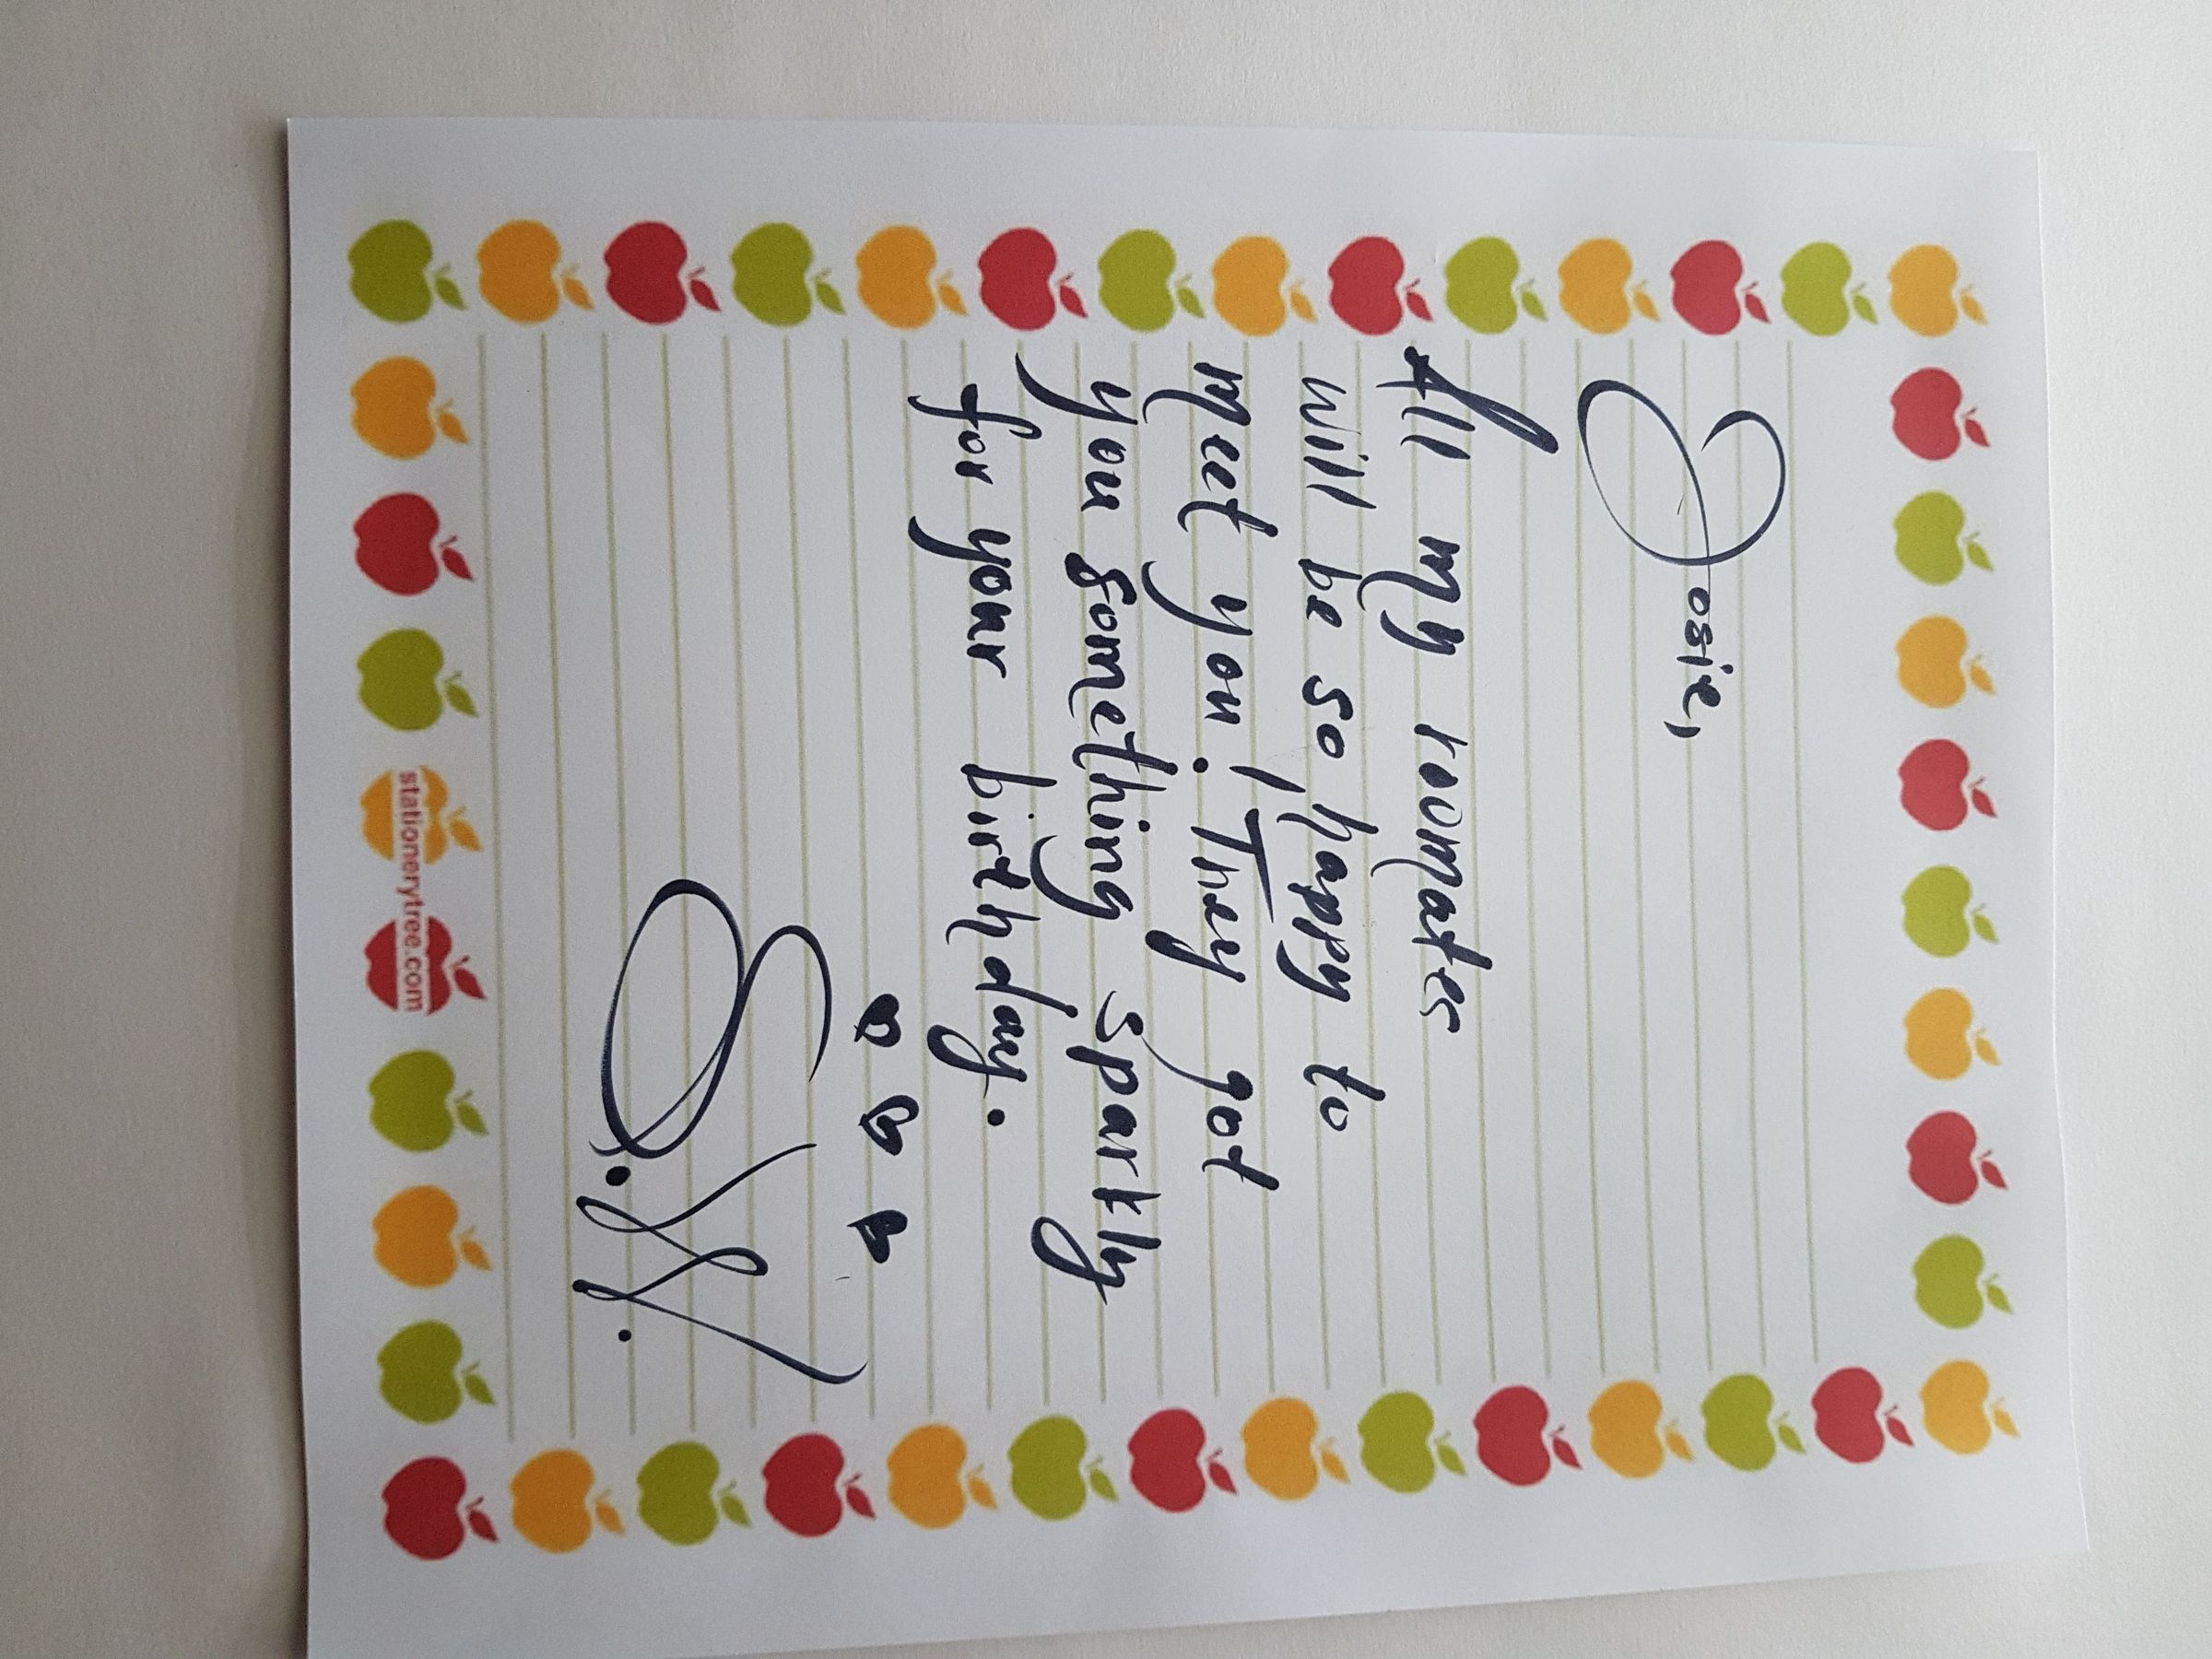 Josie,
All my roomates
will be so happy to
meet you! They got
you something sparkly
for your birthday.
S.H.
stationerytree.com